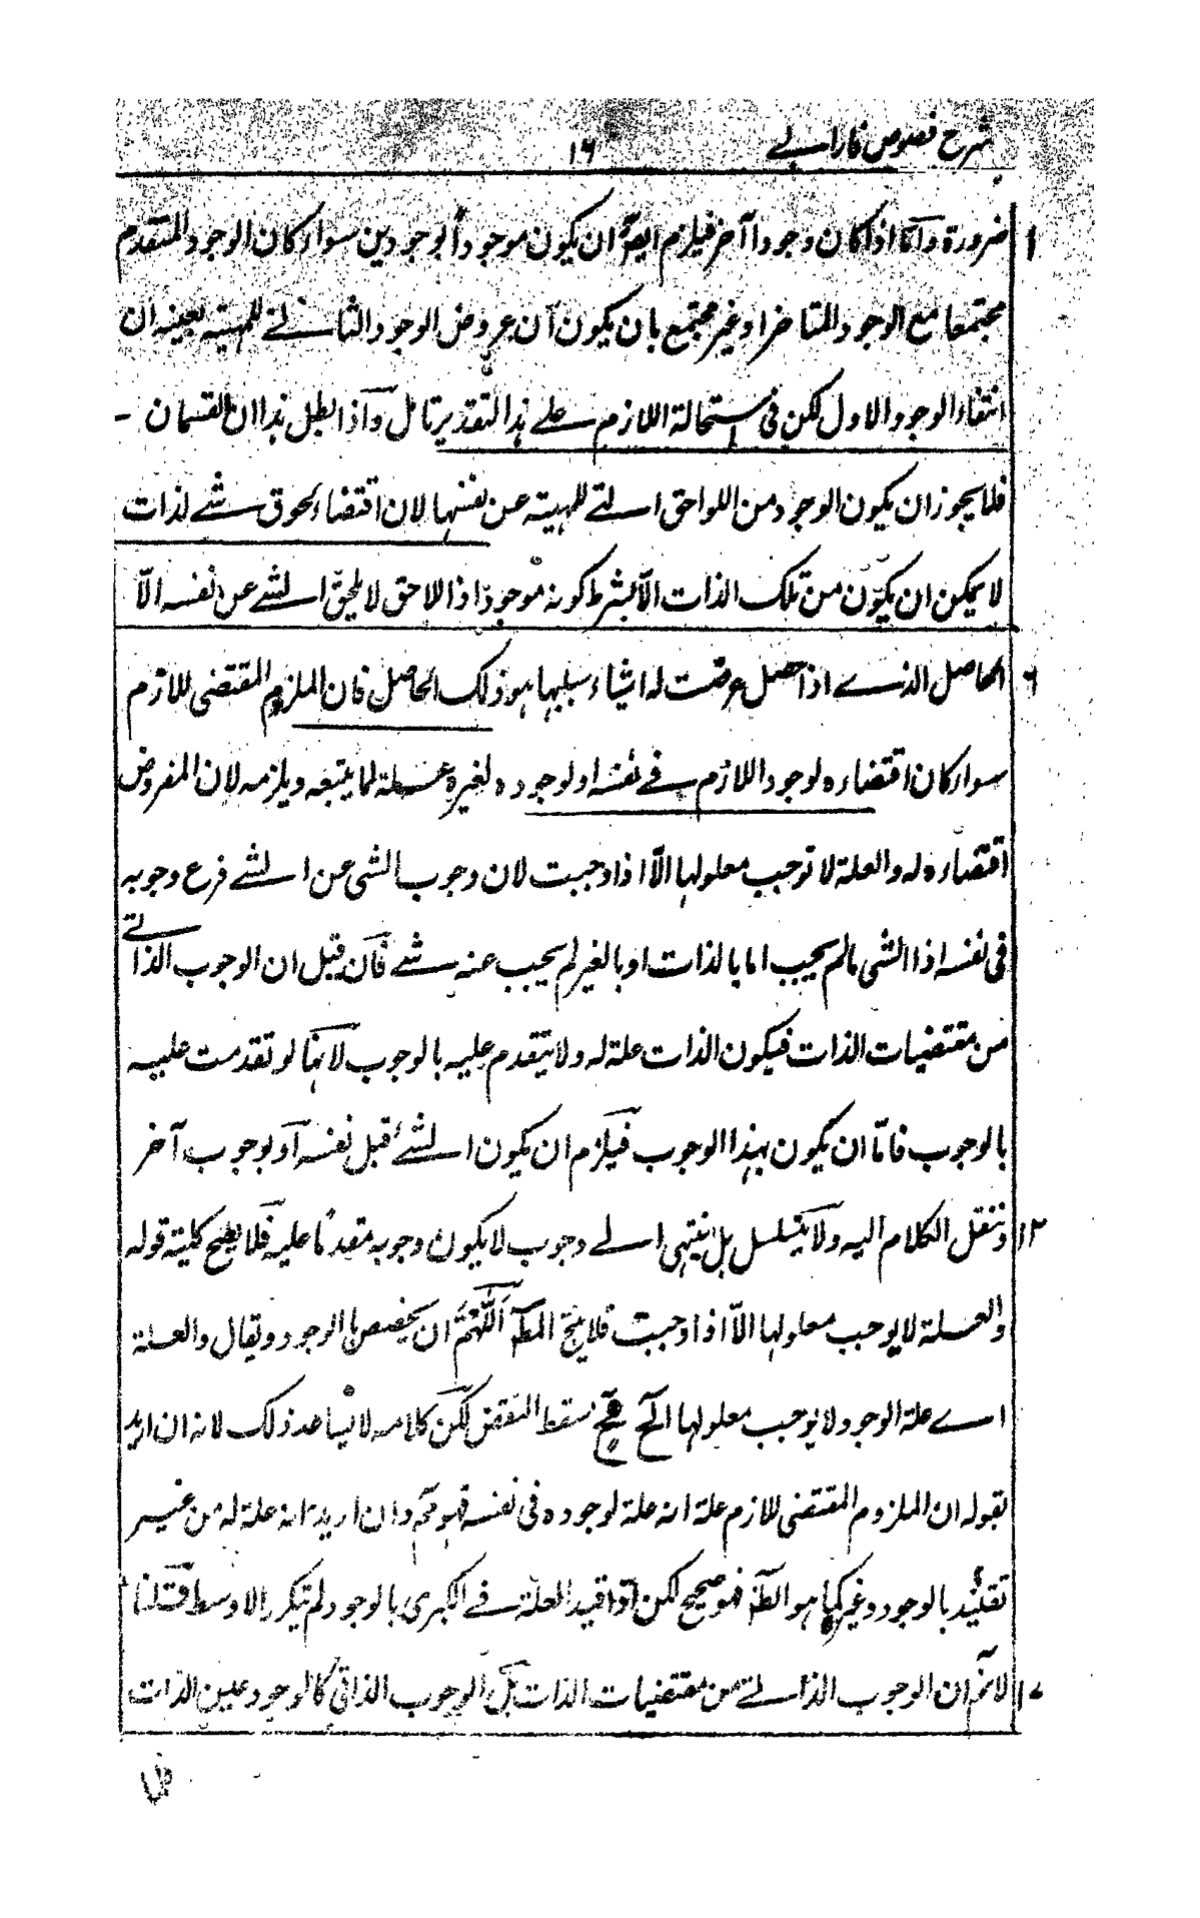 شرح فصوص فارابے
١٦
١ ضرورة وآما اذا كان وجودا آخر فيلزم ايضا ان يكون موجودا بوجودين سواء كان الوجود المتقدم
مجتمعا مع الوجود المتاخر او غير مجتمع بان يكون آن عروض الوجود الثانے للمهية بعينه ان
انتفاء الوجود الاول لكن فى استحالة اللازم علے هذا التقدير تامل وآذا بطل هذا ان القسمان -
فلا يجوز ان يكون الوجود من اللواحق التے للمهية عن نفسها لان اقتضاء لحوق شے لذات
لا يمكن ان يكون من تلك الذات الّا بشرط كونه موجودا اذ اللاحق لا يلحق الشے عن نفسه الّا
٦ الحاصل الذے اذا حصل عرضت له اشياء سببها هو ذلك الحاصل فان الملزوم المقتضى للازم
سواء كان اقتضاءه لوجود اللازم فے نفسه او لوجوده لغيره علة لما يتبعه ويلزمه لان المفروض
اقتضاءه له والعلة لا توجب معلولها الّا اذا وجبت لان وجوب الشى عن الشے فرع وجوبه
فى نفسه اذ الشى مالم يجب اما بالذات او بالغير لم يجب عنه شے فآن قيل ان الوجوب الذاتے
من مقتضيات الذات فيكون الذات علة له ولا يتقدم عليه بالوجوب لانها لو تقدمت عليه
بالوجوب فامّا ان يكون بهذا الوجوب فيلزم ان يكون الشئ قبل نفسه آو بوجوب آخر
١٢ وننقل الكلام اليه ولا يتسلسل بل ينتهى الے وجوب لا يكون وجوبه مقدما عليه فلا يصح كلية قوله
والعلة لا يوجب معلولها الّا اذا وجبت فلا ينتج المط آللّهم ان يخصص بالوجود ويقال والعلة
اے علة الوجود لا يوجب معلولها الخ فح سقط النقض لكن كلامه لا يساعد ذلك لانه ان اريد
بقوله ان الملزوم المقتضى للازم علة انه علة لوجوده فى نفسه فهو مم وان اريد انه علة له من غير
تقييد بالوجود وغيره كما هو الظ فهو صحيح لكن اذا قيد العلة فے الكبرى بالوجود لم يتكرر الاوسط قلنا
١٧ لانم ان الوجوب الذاتے من مقتضيات الذات بل الوجوب الذاتى كالوجود عين الذات